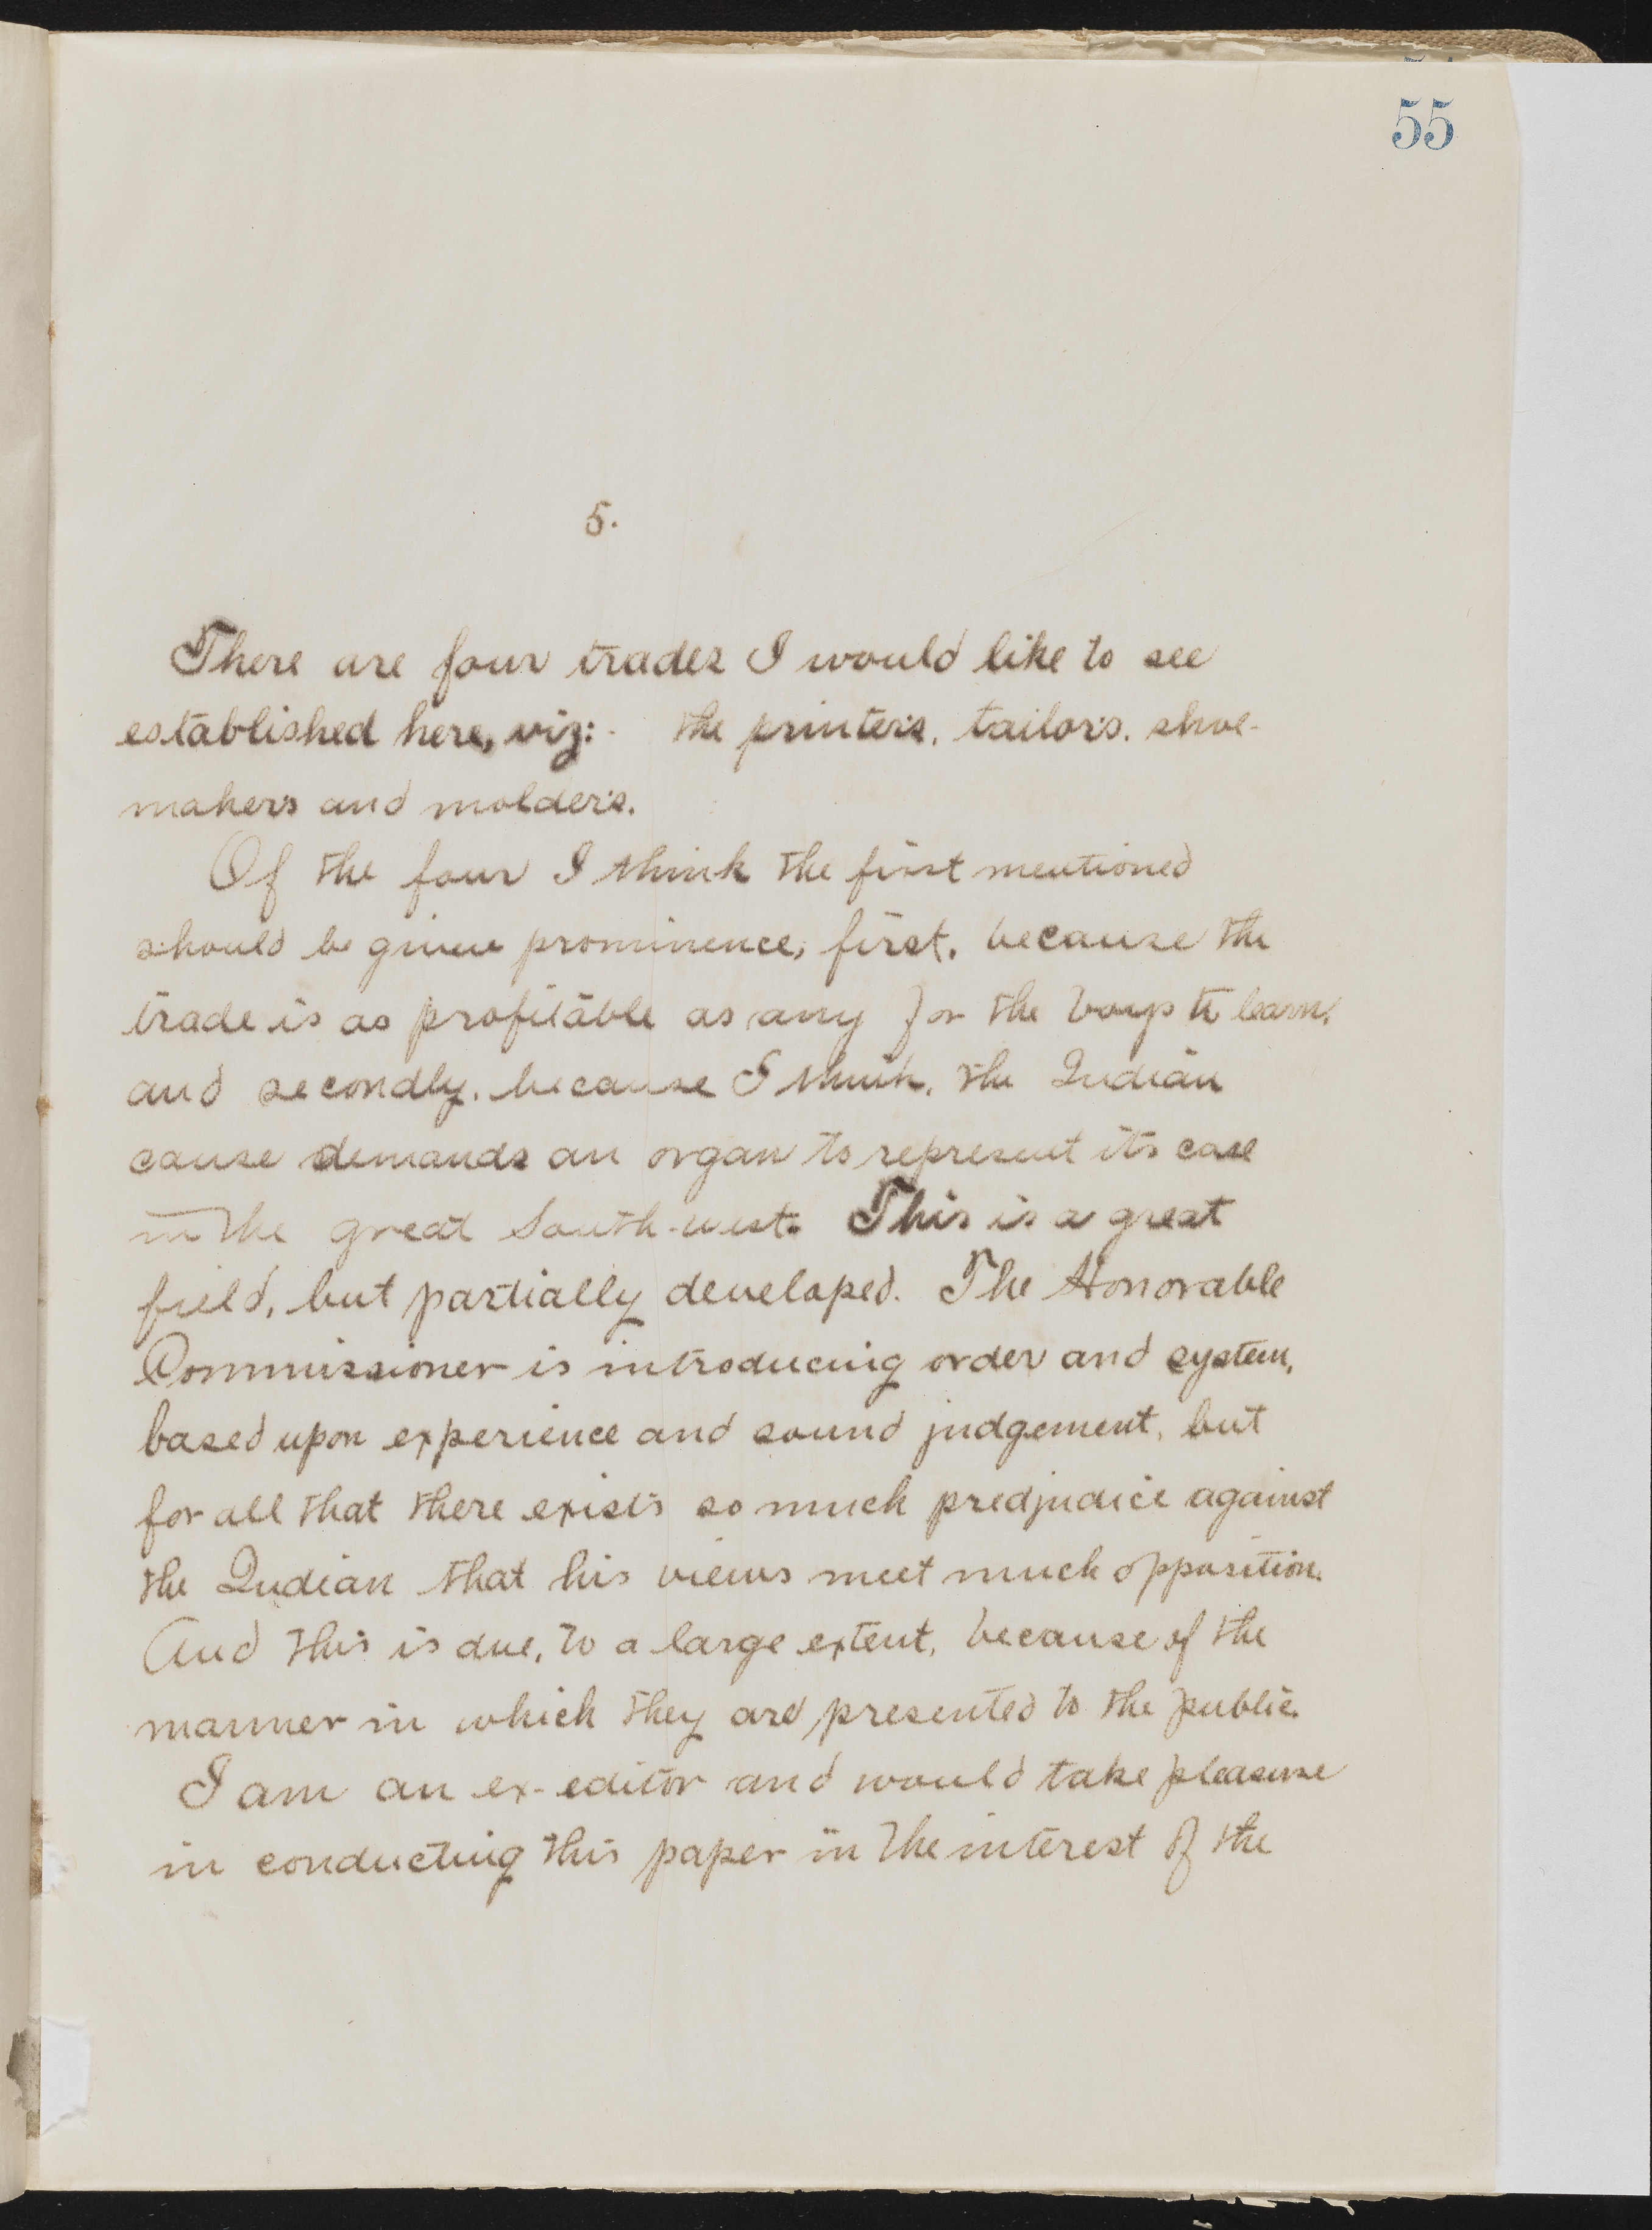 55
5.
There are four trades I would like to see
established here, viz:- the printer's, tailor's, shoe-
maker's and molder's.
Of the four I think the first mentioned
should be given prominence, first, because the
trade is as profitable as any for the boys to learn,
and secondly, because I think, the Indian
cause demands an organ to represent its case
in the great South-west. This is a great
field, but partially developed. The Honorable
Commissioner is introducing order and system,
based upon experience and sound judgement, but
for all that there exists so much predjudice against
the Indian that his views meet much opposition.
And this is due, to a large extent, because of the
manner in which they are presented to the public.
I am an ex-editor and would take pleasure
in conducting this paper in the interest of the